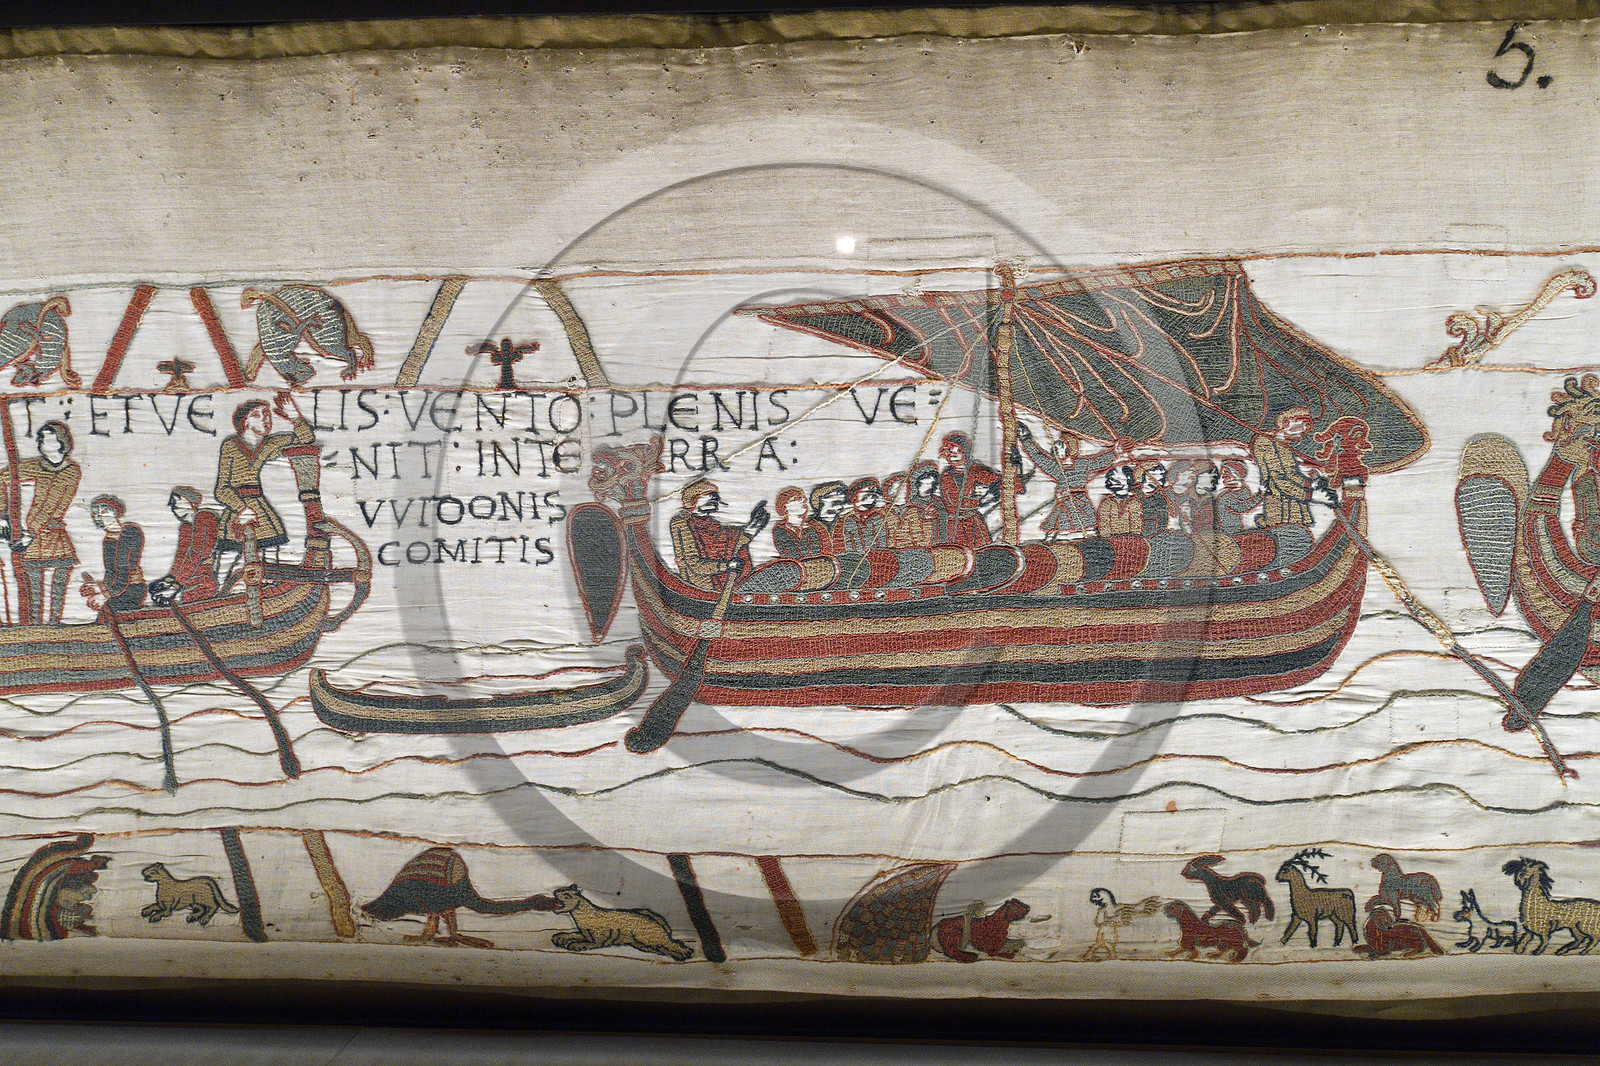 5.
T : ET VE LIS : VENTO : PLENIS VE =
= NIT : IN TE RR A :
VVIDONIS
COMITIS